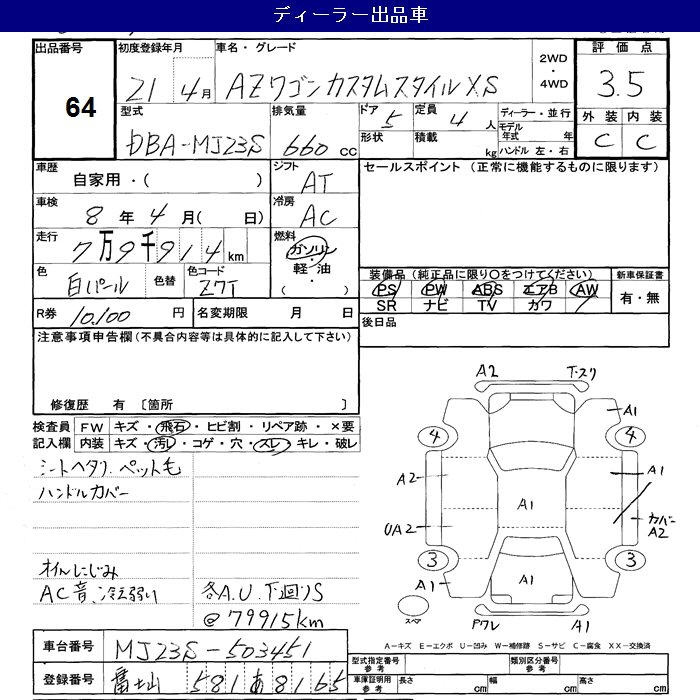 ディーラー出品車
出品番号 64
初度登録年月 21 4月
車名・グレード AZワゴン カスタムスタイルXS
2WD・4WD
評価点 3.5
型式 DBA-MJ23S
排気量 660 cc
ドア 5
形状
定員 4 人
積載 kg
ディーラー・並行
モデル年式 年
ハンドル 左・右
外装 C
内装 C
車歴 自家用・( )
シフト AT
車検 8年 4月( 日)
冷房 AC
走行 7万9千914km
燃料 ガソリン・軽・油・( )
色 白パール
色替
色コード Z7T
R券 10,100 円
名変期限 月 日
セールスポイント (正常に機能するものに限ります)
装備品(純正品に限り○をつけてください)
PS PW ABS エアB AW
SR ナビ TV カワ
新車保証書
有・無
後日品
注意事項申告欄(不具合内容等は具体的に記入して下さい)
修復歴 有 〔箇所 〕
検査員記入欄
FW キズ・飛石・ヒビ割・リペア跡・×要
内装 キズ・汚レ・コゲ・穴・スレ・キレ・破レ
シートヘタリ、ペット毛
ハンドルカバー
オイルにじみ
AC音、冷え弱い
各A.U. 下廻りS
@79915km
A2 T.スリ
A1
4 4
A2 A1 A1
UA2 カバー A2
3 3
A1 A1
スペア
ワレ A1
A-キズ E-エクボ U-凹み W-補修跡 S-サビ C-腐食 XX-交換済
車台番号 MJ23S-503451
登録番号 富士山 581 あ 8165
型式指定番号 参考
類別区分番号 参考
車庫証明用 参考
長さ cm 幅 cm 高さ cm